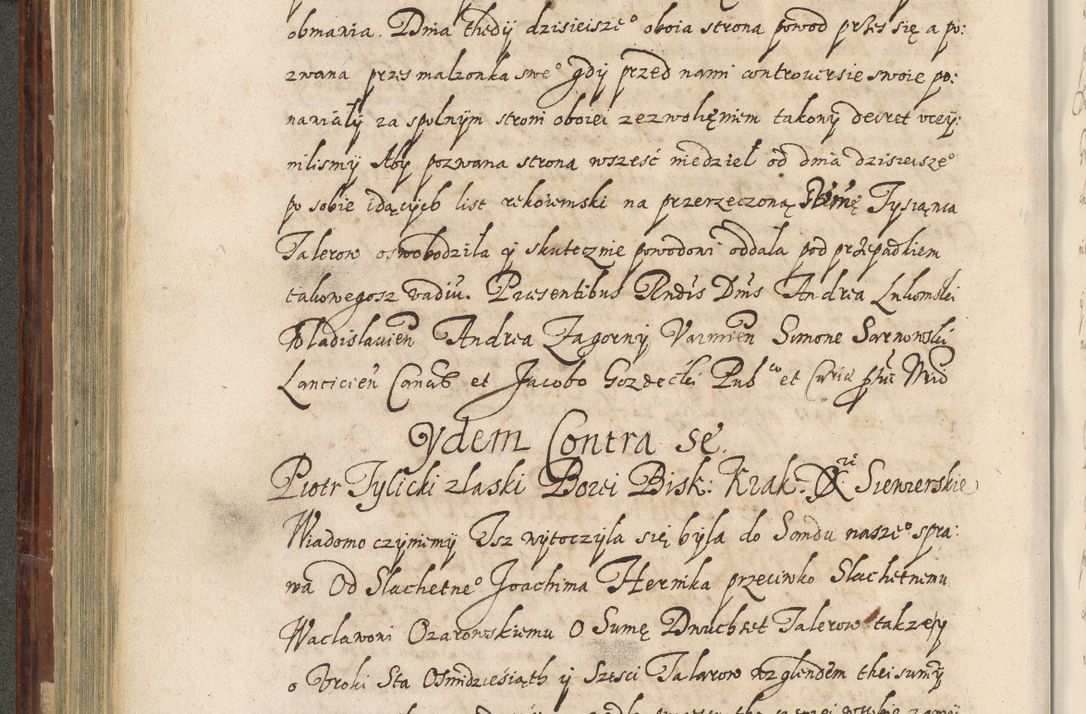 obmania. Dnia thedy dzisieisze° oboia strona powod przes się a po:
zwana przes malzonka swe° gdy przed nami controuersie swoie po:
nawialy za spolnym stron oboiei zezwolęniem takowy decret vczy:
nilismy Aby pozwana strona wszesć niedziel od dnia dzisieisze°
po sobie idących list rękoiemski na przerzeczoną Sumę Tysiąnca
Talerow oswobodzila y skutecznie powodoui oddala pod przepadkiem
takowegosz vadiu. Præsentibus Rndis Dnis Andrea Lukomski
Wladislauien Andrea Zagorny Varmien Simone Sarnowski
Lancicien Cancis et Jacobo Gozdecki Pub co et Curiæ
Ydem Contra se.
Piotr Tylicki zlaski Bozei Bisk: Krak: X Siewierskie
Wiadomo czynimy Isz wytoczyla się byla do Sondu nasze° spra:
wa Od Slachetne° Joachima Hernika przeciwko Slachetnemu
Waclawowi Ozarowskiemu O Sumę Dwuchset Talerow takze y
o Vroki Sta Osmidziesiąth y Szesci Talarow wzglendem thei sumy